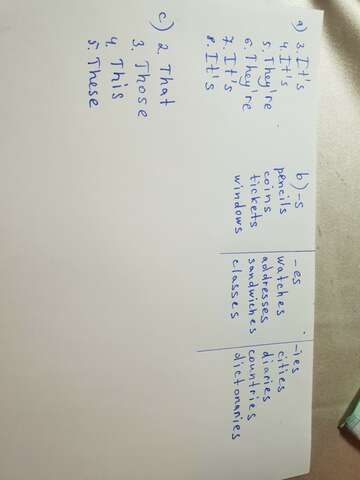 a) 3. It's
4. It's
5. They're
6. They're
7. It's
8. It's
b) -s
pencils
coins
tickets
windows
-es
watches
addresses
sandwiches
classes
-ies
cities
diaries
countries
dictonaries
c) 2. That
3. Those
4. This
5. These